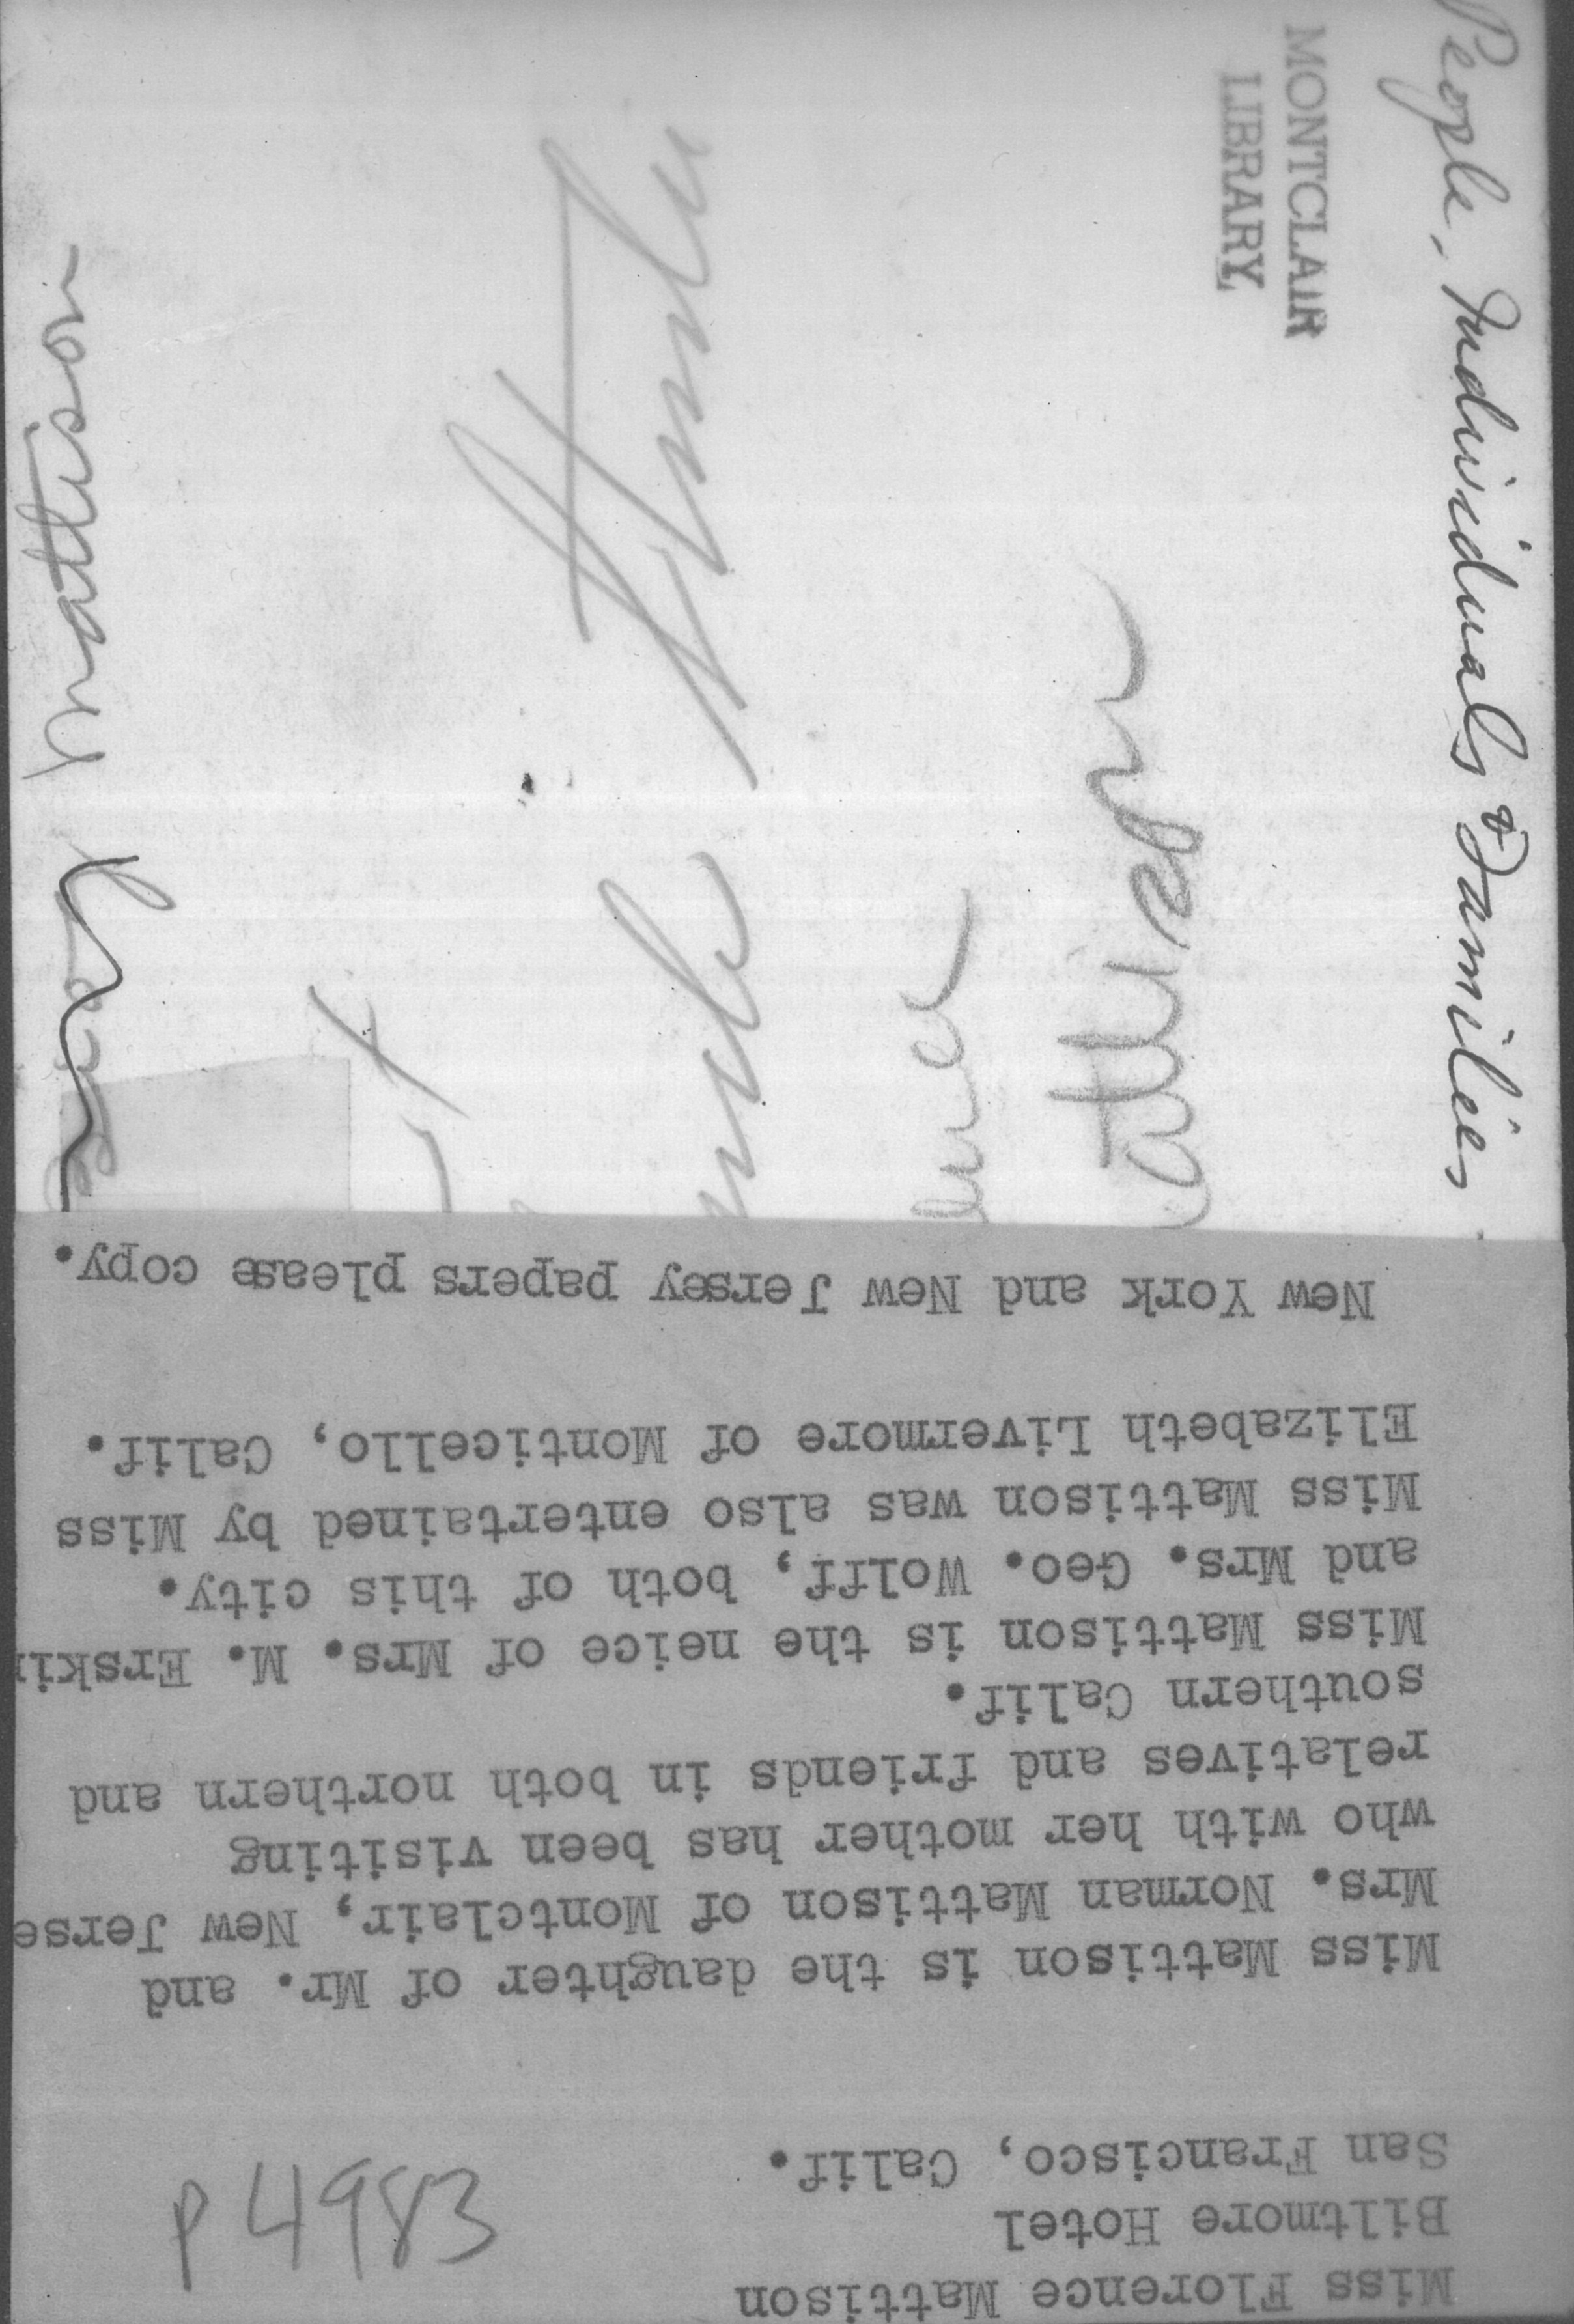 People, Individuals & Families
MONTCLAIR
LIBRARY
Mattison
Miss Florence Mattison
Biltmore Hotel
San Francisco, Calif.
Miss Mattison is the daughter of Mr. and
Mrs. Norman Mattison of Montclair, New Jerse
who with her mother has been visiting
relatives and friends in both northern and
southern Calif.
Miss Mattison is the neice of Mrs. M. Erskin
and Mrs. Geo. Wolff, both of this city.
Miss Mattison was also entertained by Miss
Elizabeth Livermore of Monticello, Calif.
New York and New Jersey papers please copy.
P4983